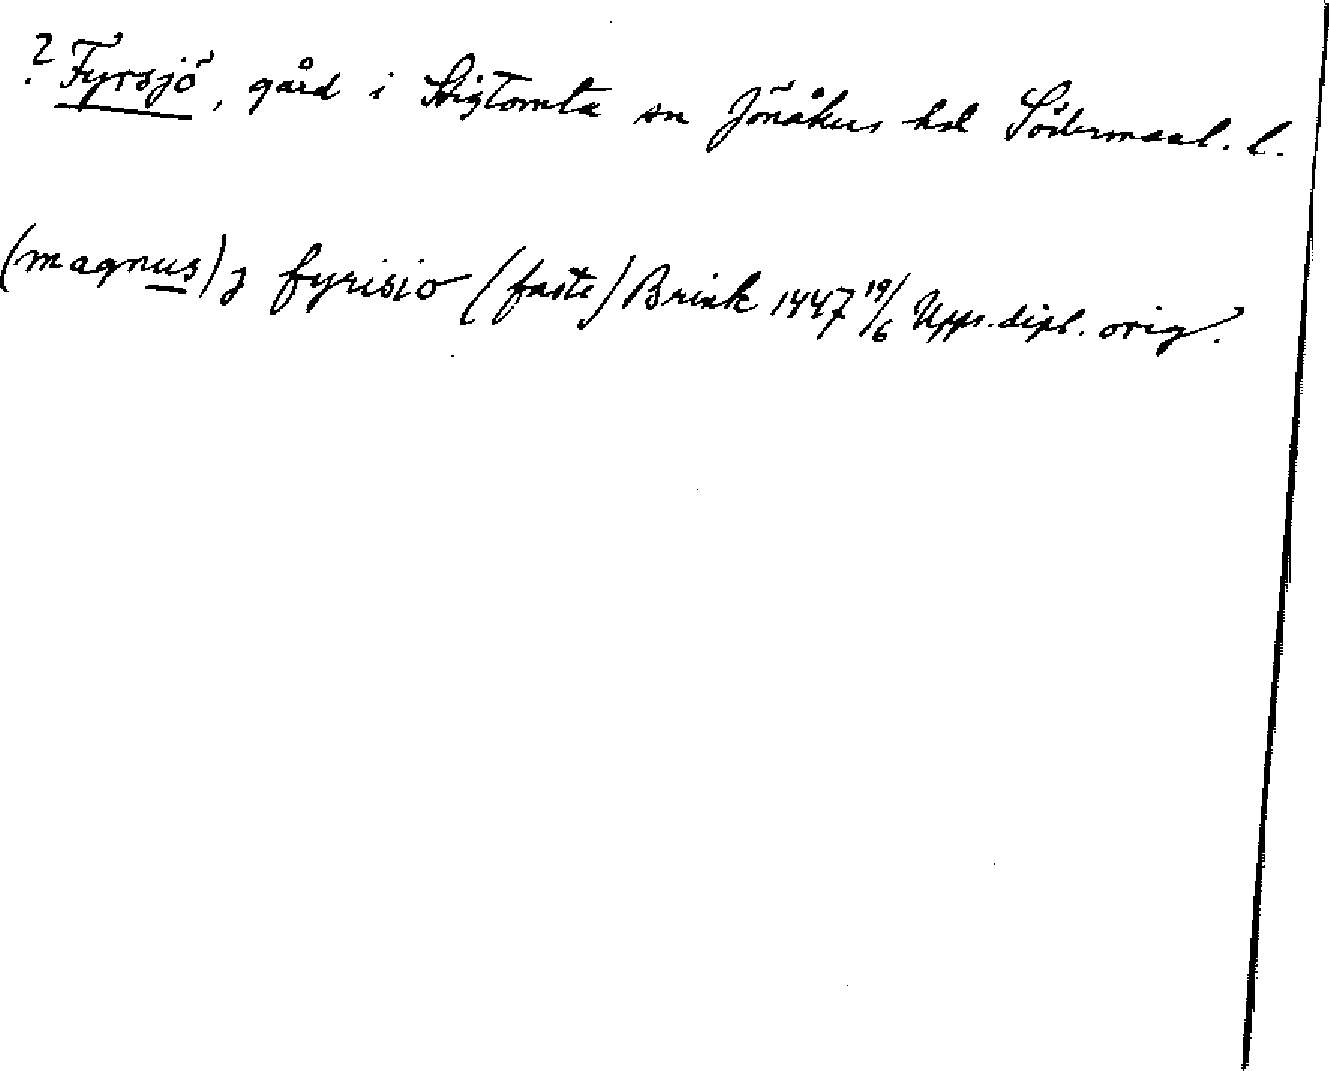 ? Fyrsjö, gård i Stigtomta sn Jönåkers hd Södermanl. l.
(magnus) j fyrisio (faste) Brink 1447 19/6 Upps. dipl. orig.